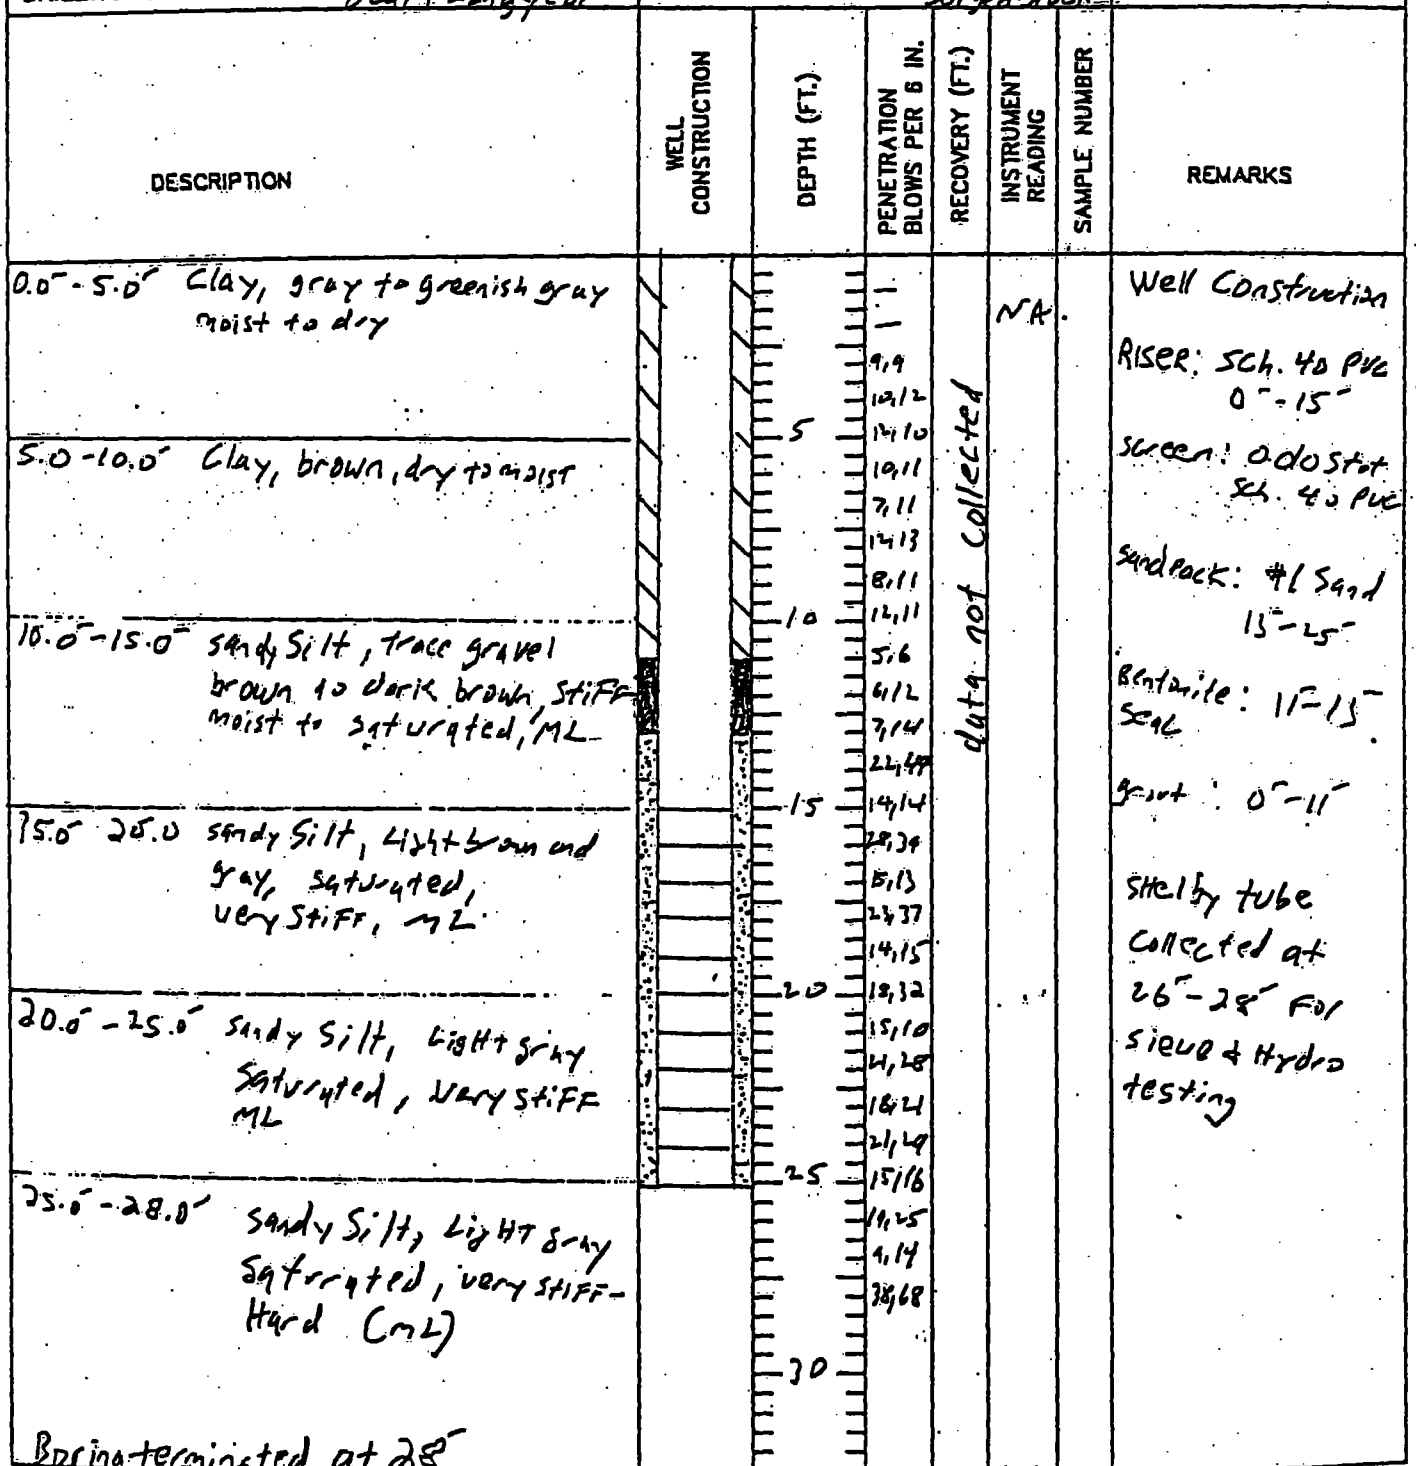 DESCRIPTION
WELL CONSTRUCTION
DEPTH (FT.)
PENETRATION
BLOWS PER 6 IN.
RECOVERY (FT.)
INSTRUMENT READING
SAMPLE NUMBER
REMARKS
0.0' - 5.0' Clay, gray to greenish gray
moist to dry
5.0 - 10.0' Clay, brown, dry to moist
10.0' - 15.0' sandy Silt, trace gravel
brown to dark brown, stiff
moist to saturated, ML
15.0' 20.0 sandy Silt, Light brown and
gray, saturated,
very stiff, ML
20.0' - 25.0' sandy Silt, Light gray
saturated, very stiff
ML
25.0' - 28.0' sandy Silt, Light gray
saturated, very stiff -
Hard (ML)
Boring terminated at 28'
5
10
15
20
25
30
9,9
10,12
12,10
10,11
7,11
12,13
8,11
12,11
5,6
6,12
7,14
22,47
14,14
28,34
15,13
23,37
14,15
18,32
15,10
21,28
16,21
21,29
15,16
19,25
9,14
38,68
data not collected
NA
Well Construction
RISER: SCh. 40 PVC
0' - 15'
screen:
Sch. 40 PVC
Sandpack: #1 Sand
13' - 25'
Bentonite: 11' - 13'
Seal
grout : 0' - 11'
SHelby tube
collected at
26' - 28' For
sieve & Hydro
testing